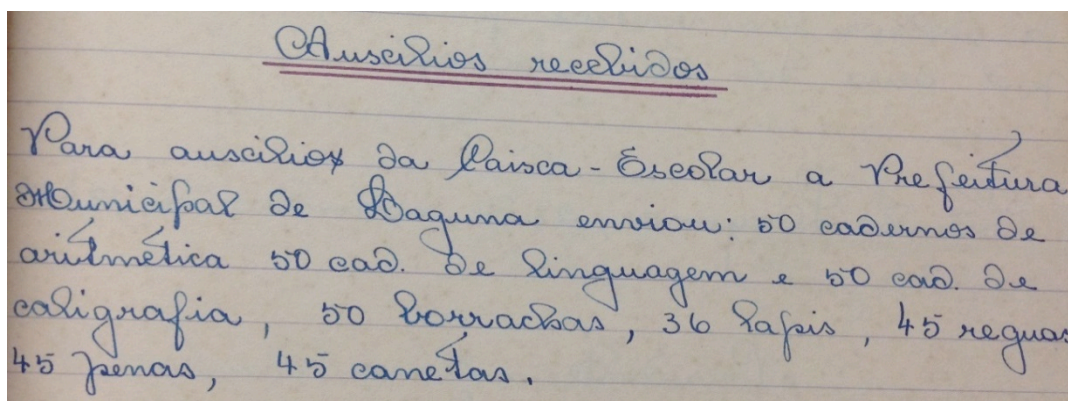 Auxilios recebidos
Para auxilios da Caixa-Escolar a Prefeitura
Municipal de Laguna enviou: 50 cadernos de
aritmética 50 cad. de linguagem e 50 cad. de
caligrafia, 50 borrachas, 36 lapis, 45 reguas
45 penas, 45 canetas.